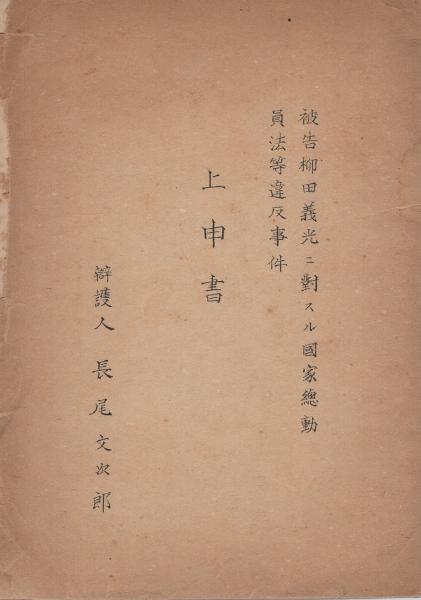 被告柳田義光ニ對スル國家總動
員法等違反事件
上申書
辯護人 長尾文次郎